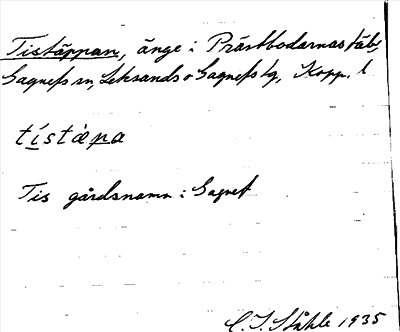 Tistäppan, änge i Prästbodarnas fäb.,
Gagnefs sn, Leksands o Gagnefs tg, Kopp. l.
tistäpa
Tis gårdsnamn i Gagnef
C. I. Ståhle 1935